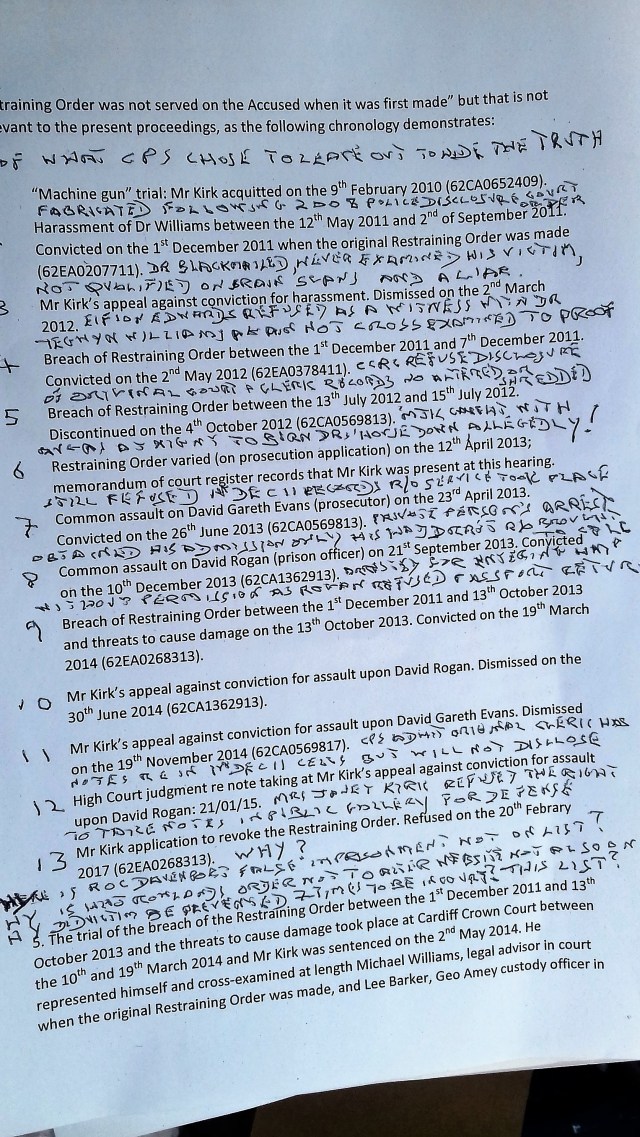 training Order was not served on the Accused when it was first made" but that is not
evant to the present proceedings, as the following chronology demonstrates:
OF WHAT CPS CHOSE TO LEAVE OUT TO HIDE THE TRUTH
"Machine gun" trial: Mr Kirk acquitted on the 9th February 2010 (62CA0652409).
FABRICATED FOLLOWING 2008 POLICE DISCLOSURE COURT ORDER
Harassment of Dr Williams between the 12th May 2011 and 2nd of September 2011.
Convicted on the 1st December 2011 when the original Restraining Order was made
(62EA0207711). DR BLACKMAILED, NEVER EXAMINED HIS VICTIM,
NOT QUALIFIED ON BRAIN SCANS AND A LIAR.
3 Mr Kirk's appeal against conviction for harassment. Dismissed on the 2nd March
2012. EIFION EDWARDS REFUSED AS A WITNESS WITH DR
TEGWYN WILLIAMS AGAIN NOT CROSS EXAMINED TO PROOF
4 Breach of Restraining Order between the 1st December 2011 and 7th December 2011.
Convicted on the 2nd May 2012 (62EA0378411). CCRC REFUSE DISCLOSURE
OF ORIGINAL COURT CLERK RECORDS NO ALTERED OR SHREDDED
5 Breach of Restraining Order between the 13th July 2012 and 15th July 2012.
Discontinued on the 4th October 2012 (62CA0569813). MJK CAUGHT WITH
AT NIGHT TO BURN DRS HOUSE DOWN ALLEGEDLY!
6 Restraining Order varied (on prosecution application) on the 12th April 2013;
memorandum of court register records that Mr Kirk was present at this hearing.
STILL REFUSED 1st DEC 11 RECORDS R/O SERVICE TOOK PLACE
7 Common assault on David Gareth Evans (prosecutor) on the 23rd April 2013.
Convicted on the 26th June 2013 (62CA0569813). PRIVATE PERSON'S ARREST
OBTAINED HIS ADMISSION ONLY HIS
8 Common assault on David Rogan (prison officer) on 21st September 2013. Convicted
on the 10th December 2013 (62CA1362913). ARRESTED FOR
WITHOUT PERMISSION AS ROGAN REFUSED PASSPORT RETUR
9 Breach of Restraining Order between the 1st December 2011 and 13th October 2013
and threats to cause damage on the 13th October 2013. Convicted on the 19th March
2014 (62EA0268313).
10 Mr Kirk's appeal against conviction for assault upon David Rogan. Dismissed on the
30th June 2014 (62CA1362913).
11 Mr Kirk's appeal against conviction for assault upon David Gareth Evans. Dismissed
on the 19th November 2014 (62CA0569817). CPS ADMIT ORIGINAL CLERK HAS
NOTES RE IN 1st DEC 11 CELLS BUT WILL NOT DISCLOSE
12 High Court judgment re note taking at Mr Kirk's appeal against conviction for assault
upon David Rogan: 21/01/15. MRS JANET KIRK REFUSED THE RIGHT
TO TAKE NOTES IN PUBLIC GALLERY FOR DEFENSE
13 Mr Kirk application to revoke the Restraining Order. Refused on the 20th Febrary
2017 (62EA0268313). WHY?
IS ROC DAVENPORT FALSE IMPRISONMENT NOT ON LIST?
WHY IS ORDER NOT TO WEBSITE NOT ALSO ON
DID VICTIM BE PREVENTED 7 TIMES TO BE IN COURT THIS LIST?
5. The trial of the breach of the Restraining Order between the 1st December 2011 and 13th
October 2013 and the threats to cause damage took place at Cardiff Crown Court between
the 10th and 19th March 2014 and Mr Kirk was sentenced on the 2nd May 2014. He
represented himself and cross-examined at length Michael Williams, legal advisor in court
when the original Restraining Order was made, and Lee Barker, Geo Amey custody officer in